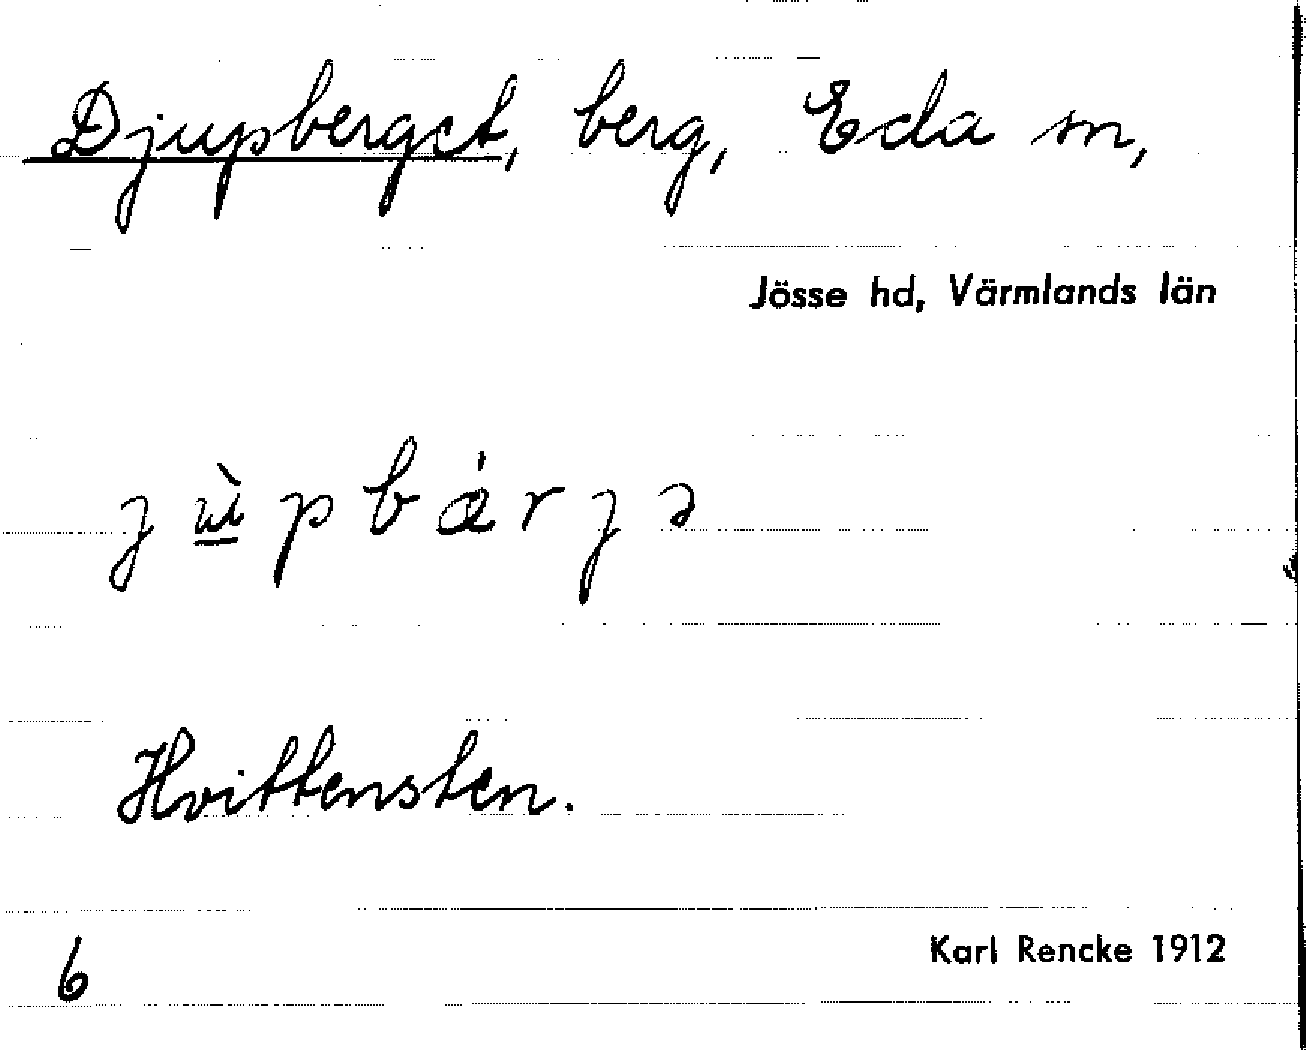 Djupberget, berg, Eda sn,
Jösse hd, Värmlands län
j ù̲ p b ǽ r j ə
Hvittensten.
6
Karl Rencke 1912